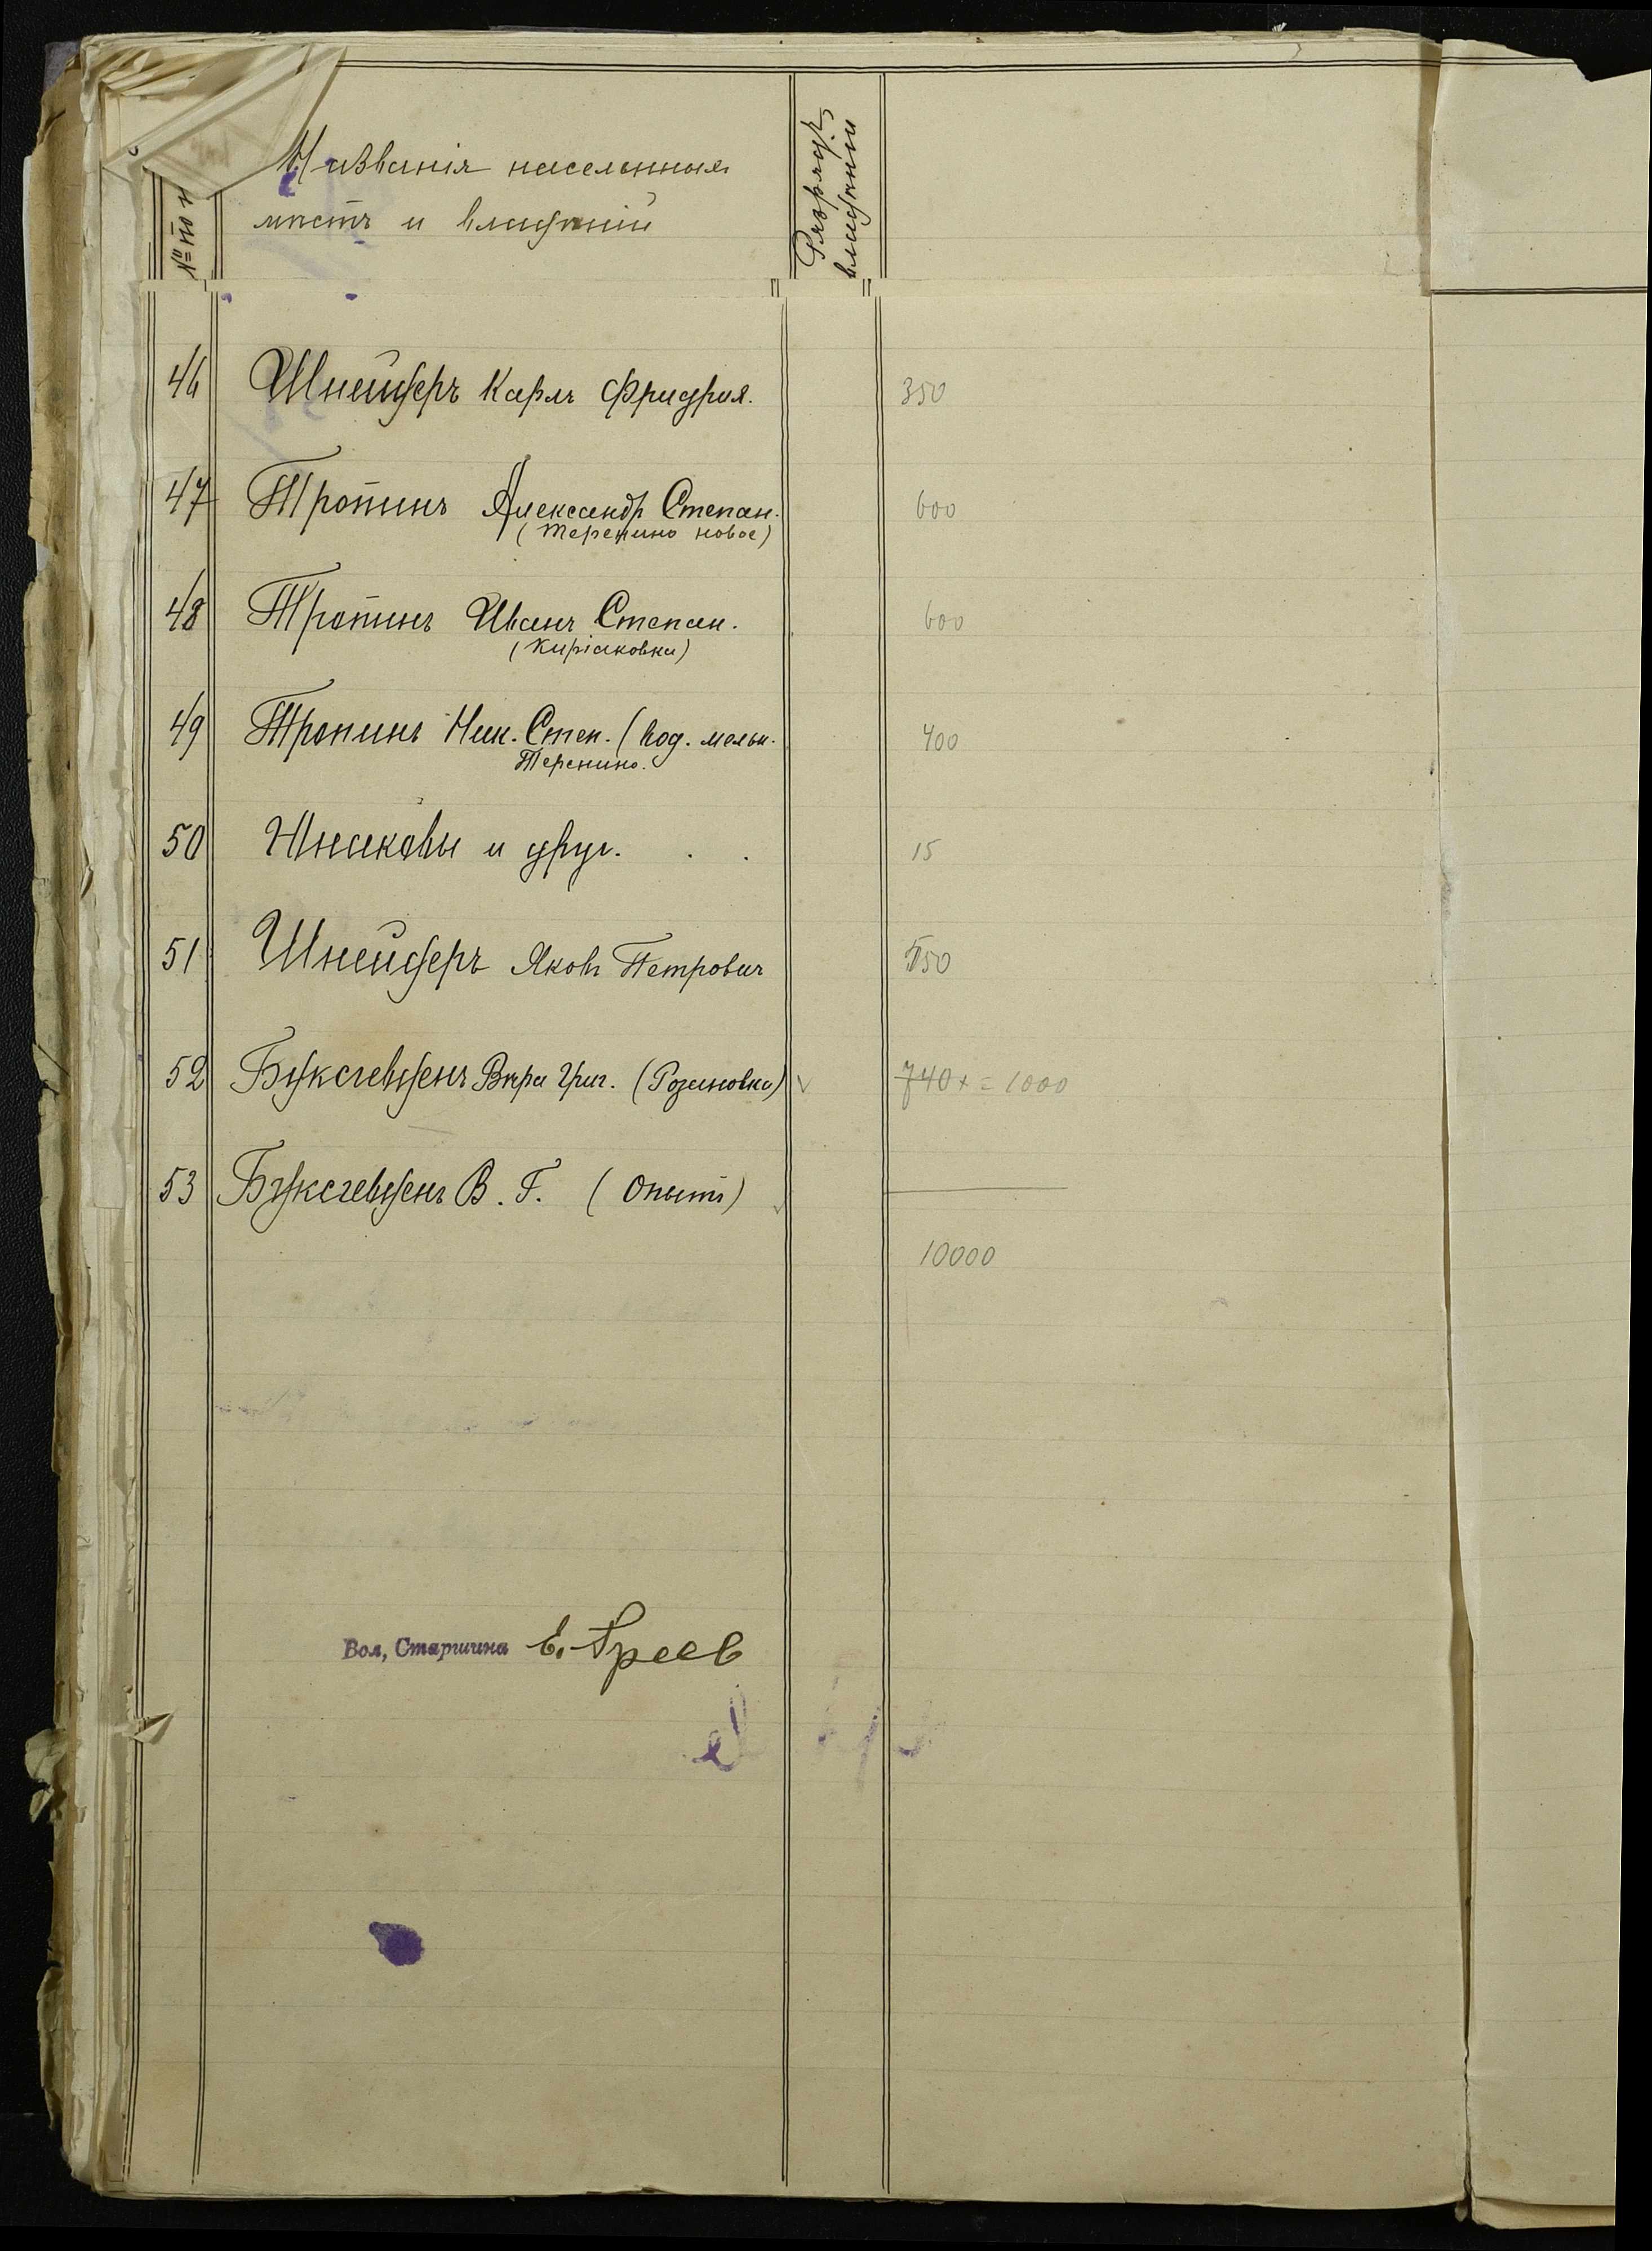 Названія населенныя
мѣстъ и владѣній
№№ по п
Разрядъ
владѣнія
46 Шнейдеръ Карлъ Фридрих. 350
47 Тропинъ Александр Степан. 600
(Теренино новое)
48 Тропинъ Иванъ Степан. 600
(Киріаковка)
49 Тропинъ Ник. Степ. (вод. мельн. 400
Теренино.
50 Юнаковы и друг. . . 15
51 Шнейдеръ Яковъ Петрович 550
52 Буксгевденъ Вѣра Григ. (Розановка) √ 740 + = 1000
53 Буксгевденъ В. Г. (Опытъ) √
10000
Вол, Старшина Е. Греев